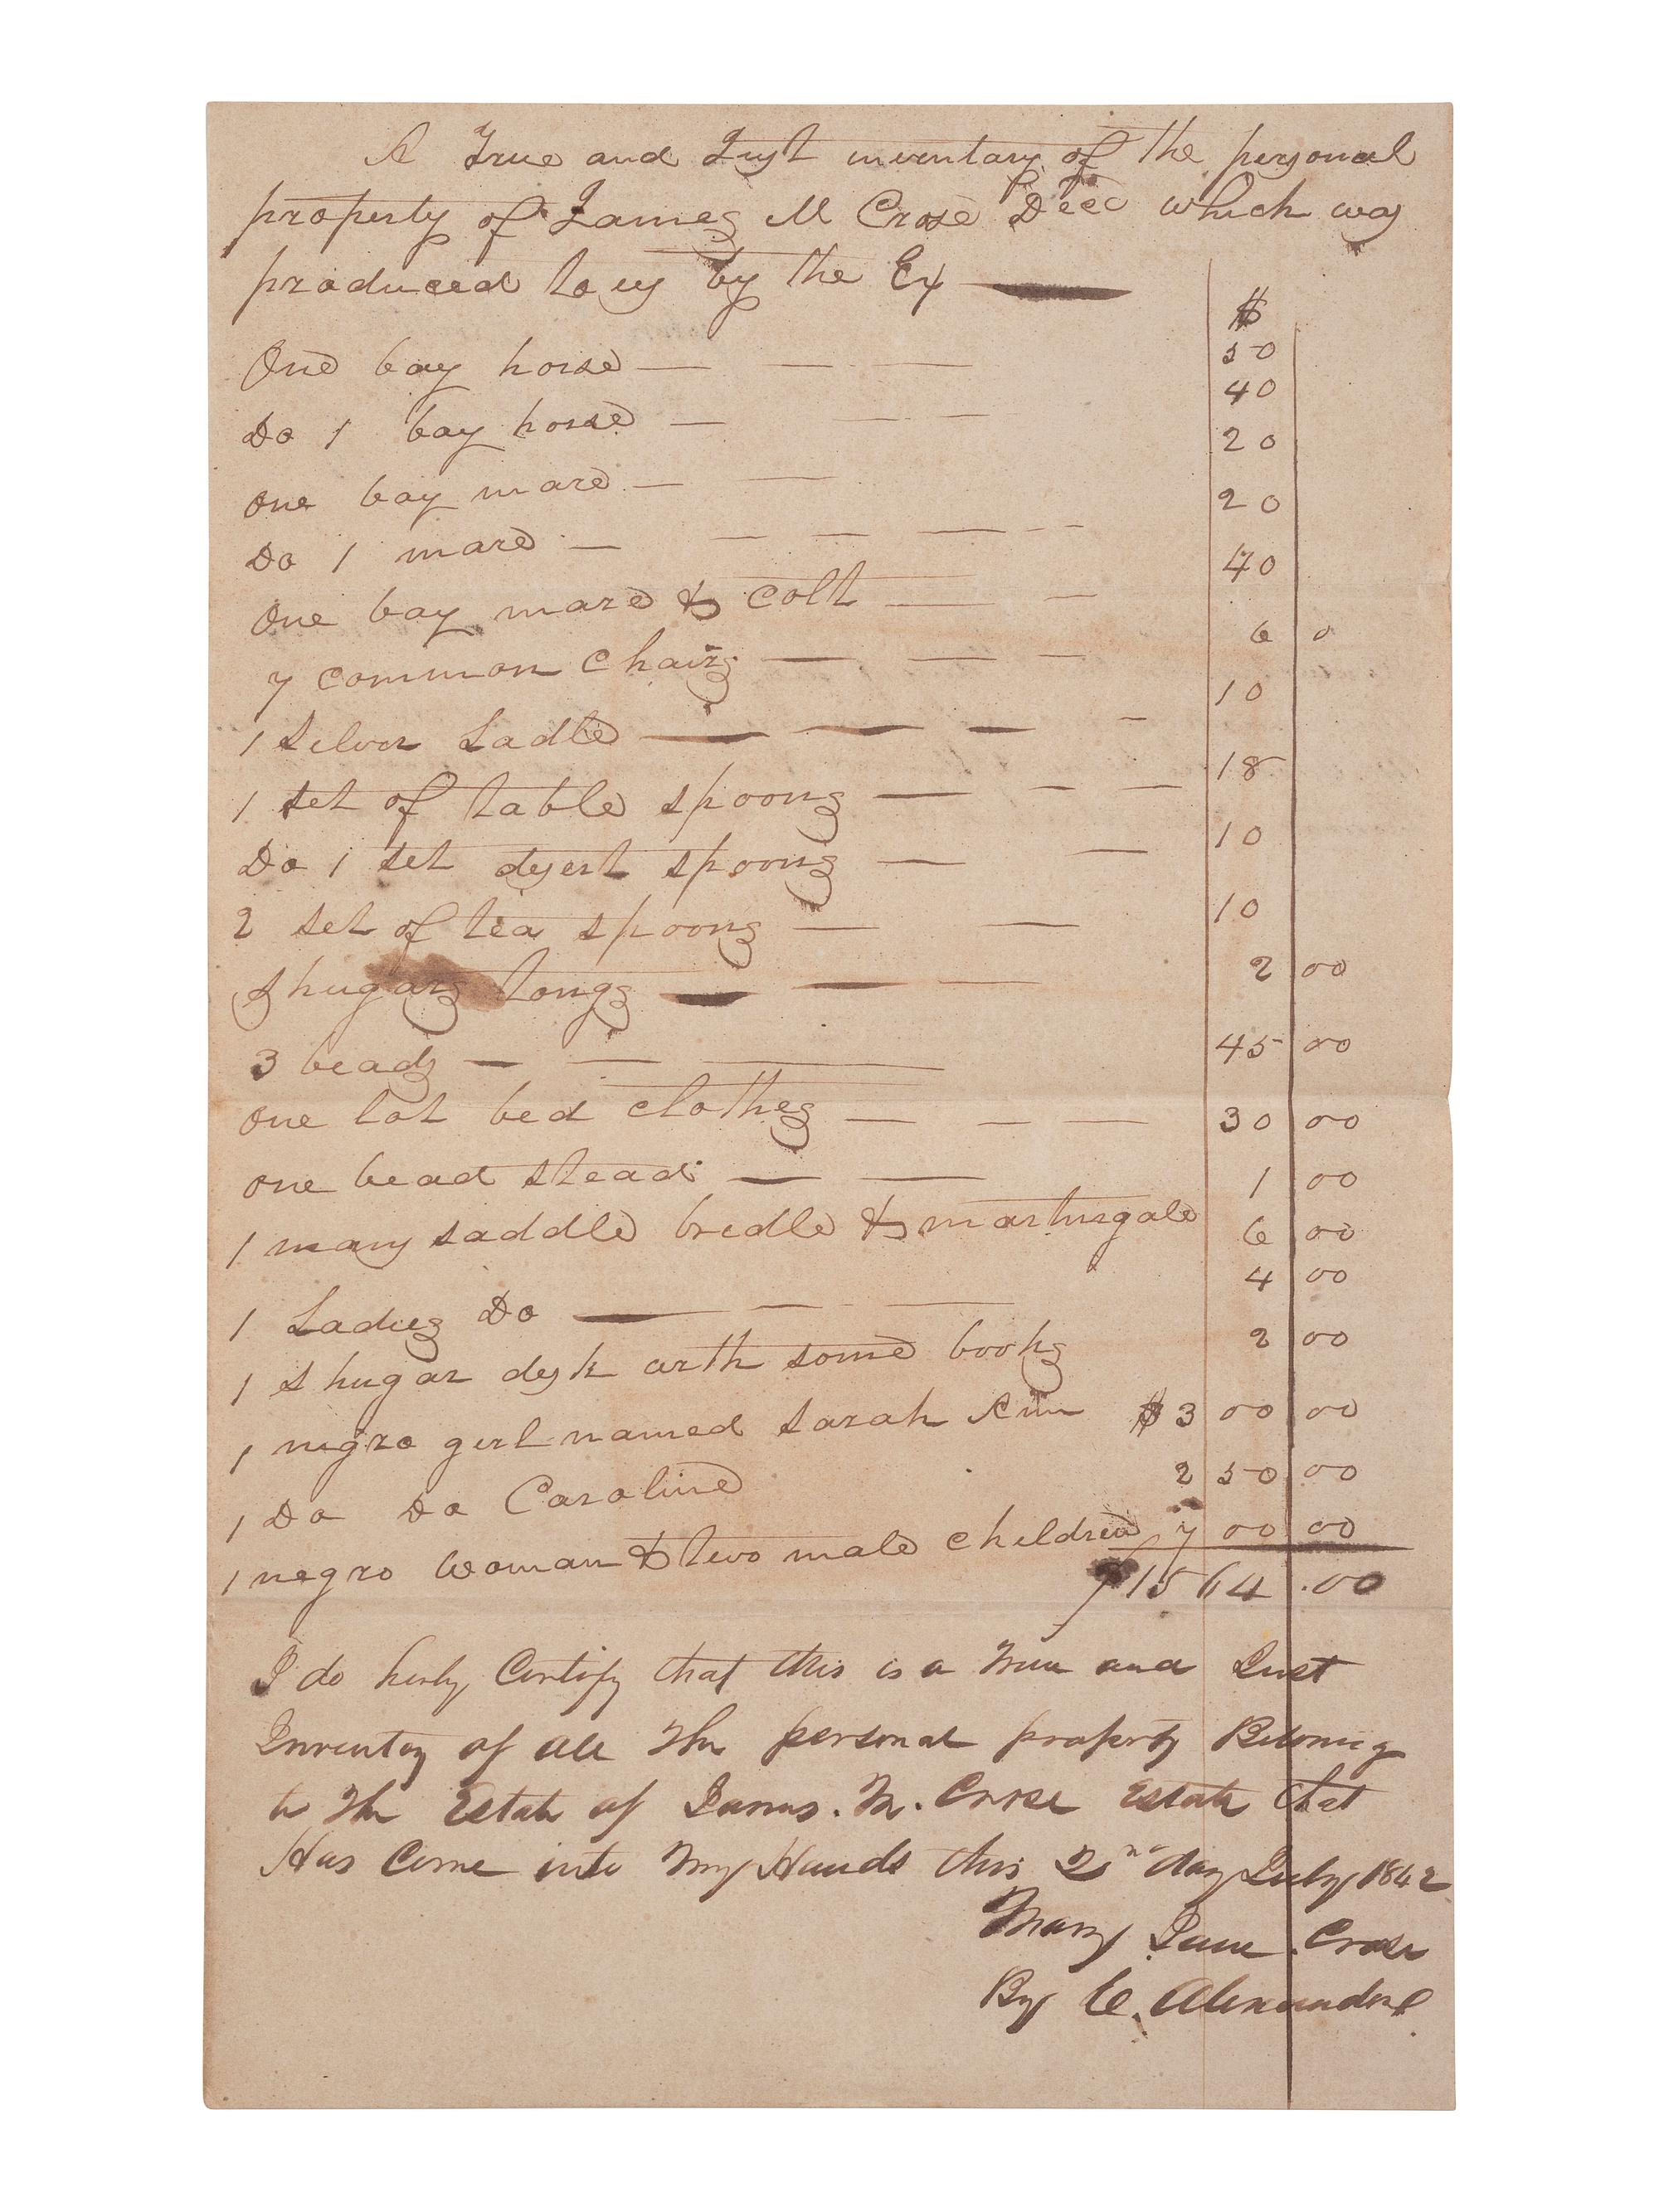 A True and Just inventary of the personal
property of James M Crose Decd which was
produced to us by the Ex
$
One bay horse — — — 50
Do 1 bay horse — — — 40
One bay mare — — 20
Do 1 mare — — — — — 20
One bay mare & colt — — 40
7 common Chairs — — — 6 0
1 Silver Ladle — — — — 10
1 set of table spoons — — — 18
Do 1 set desert spoons — — 10
2 set of tea spoons — — 10
Shugars tongs — — — 2 00
3 beads — — — 45 00
One lot bed clothes — — — 30 00
one bead stead — — 1 00
1 mans saddle bridle & martingale 6 00
1 Ladies Do — — — 4 00
1 shugar desk with some books 2 00
1 negro girl named Sarah Ann $300 00
1 Do Do Caroline 250 00
1 negro Woman & two male children 700 00
$1564.00
I do herby Certify that this is a True and Just
Inventoy of all The personal property Belonig
to The Estate of James. M. Crose Estate that
Has Come into My Hands this 2nd day July 1842
Mary Jane Crose
By C. Alexander